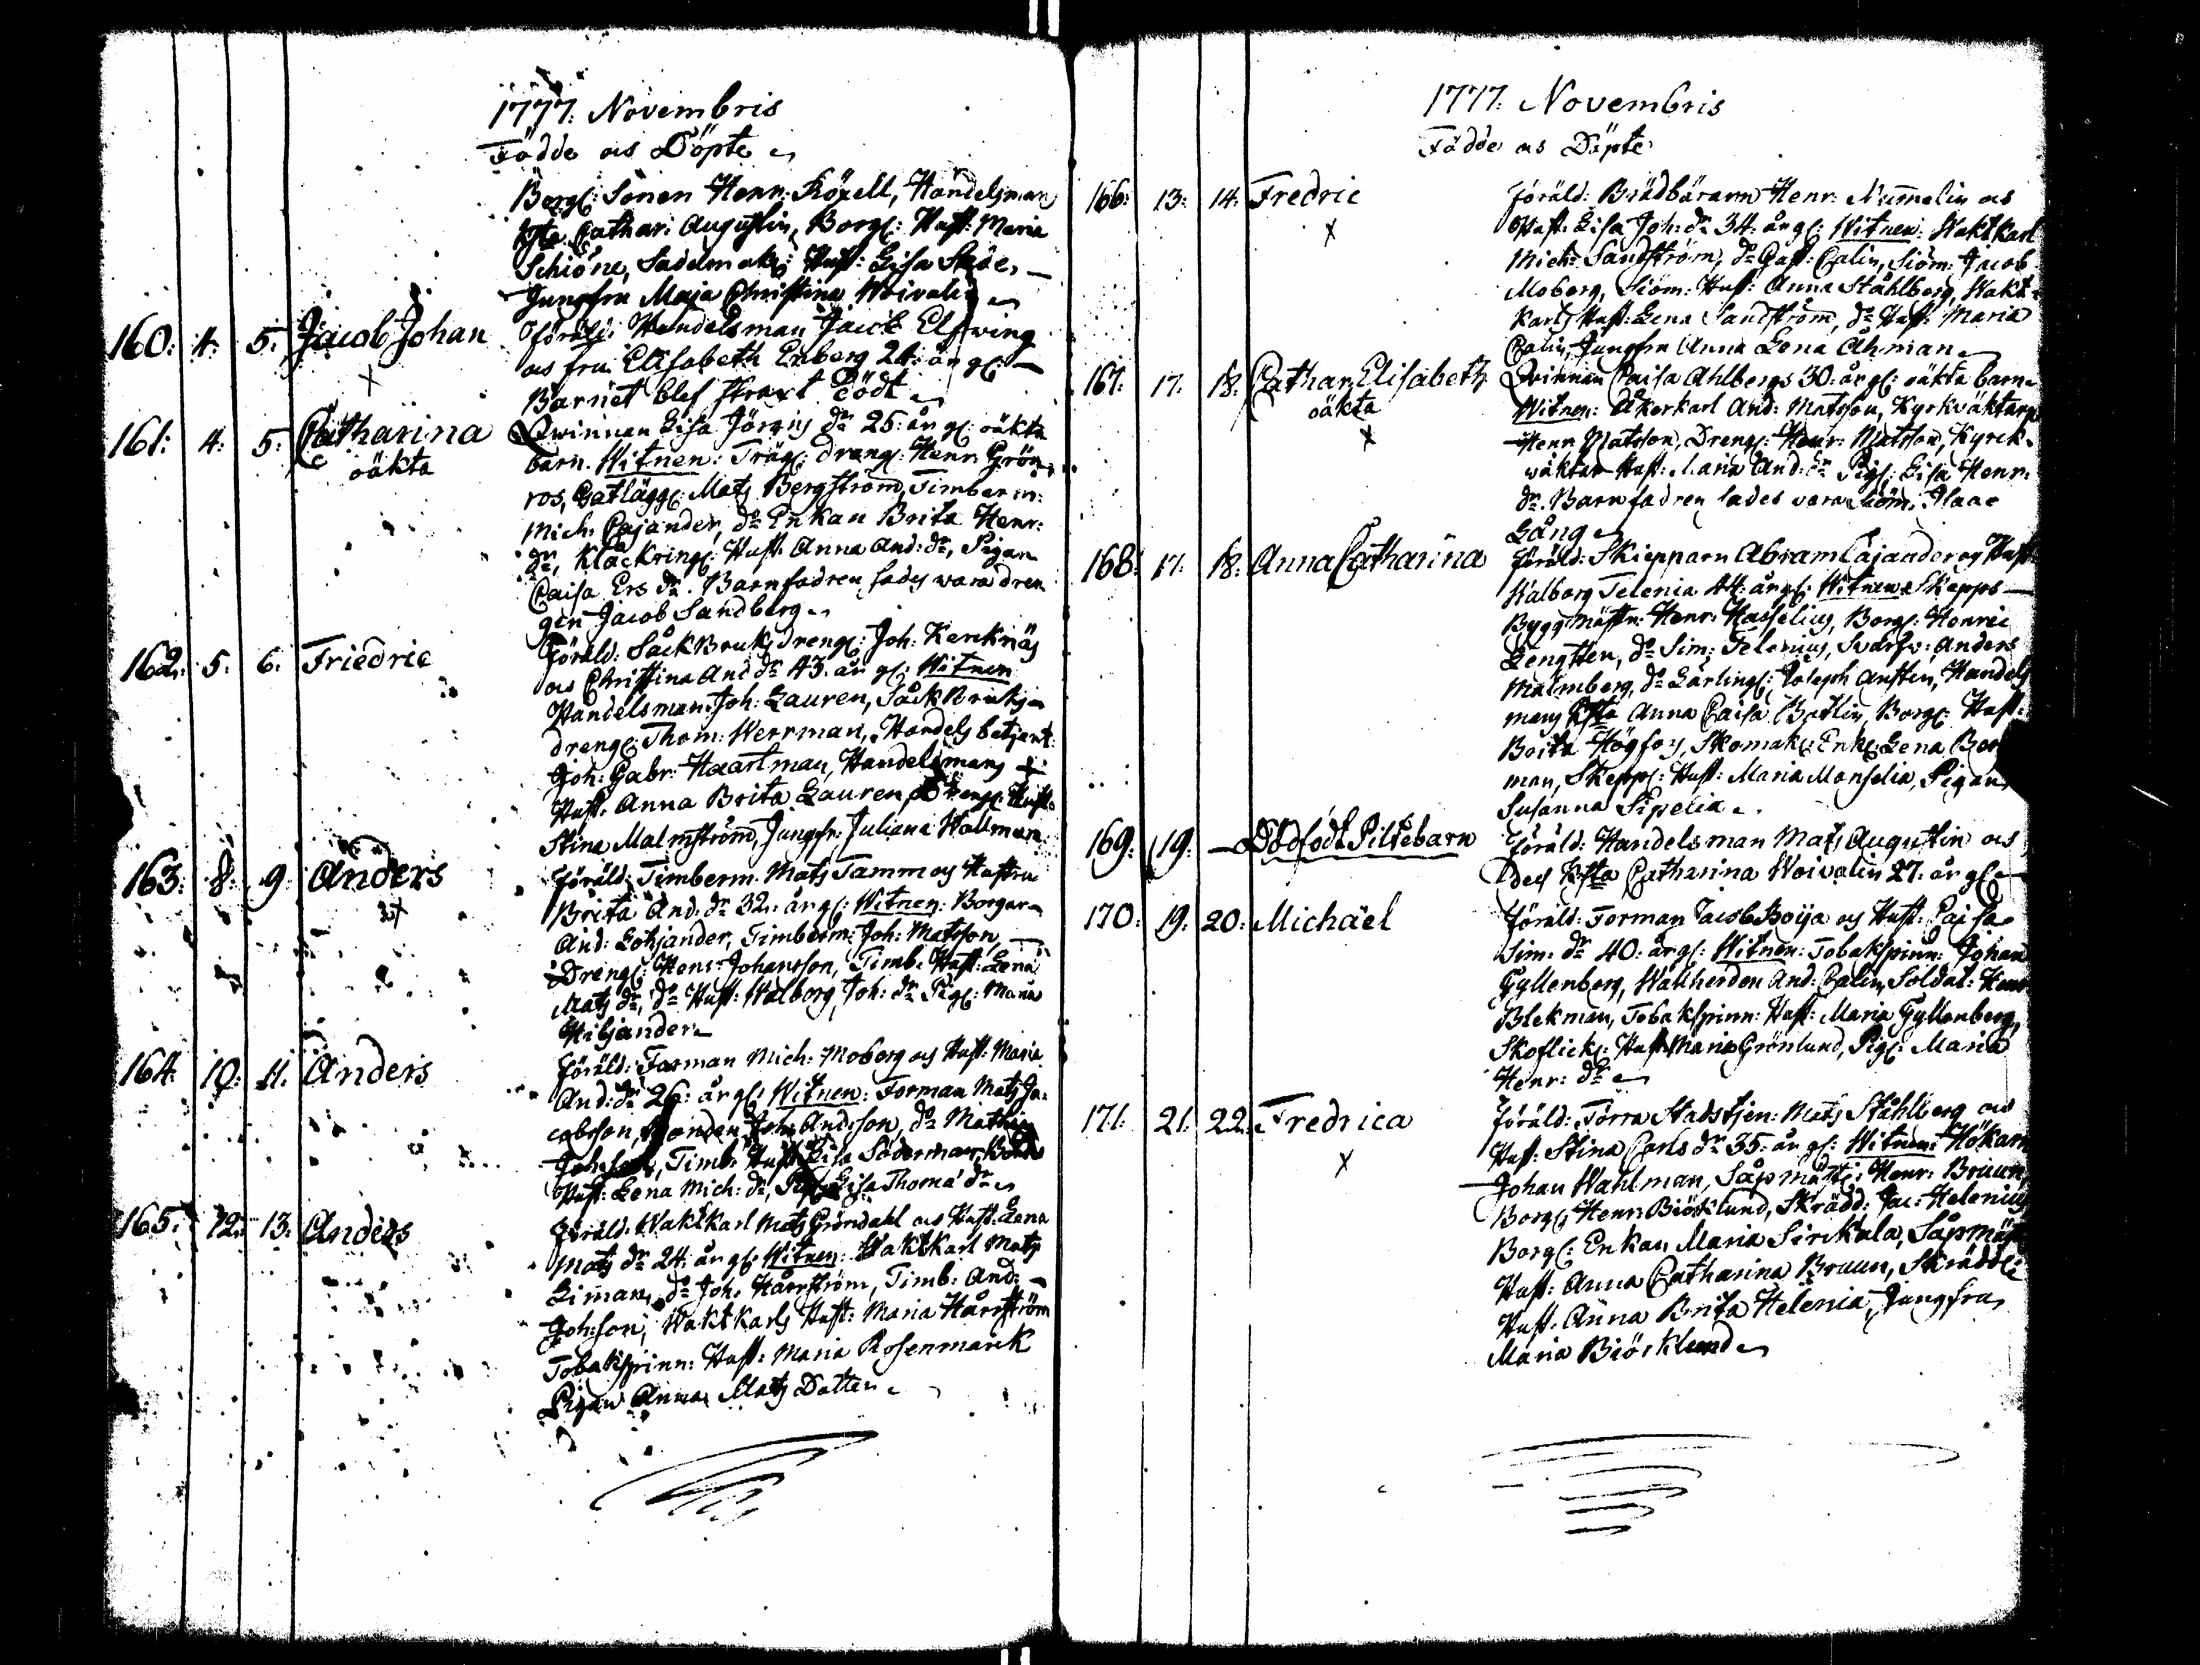 1777: Novembris
Födde ock Döpte
Borg: Sonen Henr: Höxell, Handelsman
Catharr: Augustin, Borg: Hust: Maria
Schiöne, Sadelmak: Hust: Lisa Sköe,
Jungfru Maja Christina Woivalin
160: 4. 5. Jacob Johan Föräld: Handelsman Jacob Elfwing
ock fru Elisabeth Enberg 24: år gl:
Barnet blef straxt dödt
161: 4: 5: Catharina Qwinnan Lisa Jörans dr 25: år gl: oäkta
oäkta barn. Witnen: Träg: dreng: Henr: Grön
ros, Gatlägg: Mats Bergström, Timberm:
Mich: Cajander, do Enkan Brita Henr:
dr, Klåckring: Hust: Anna And: dr, Pigan
Caisa Ers dr. Barnfadren sades wara dren
gen Jacob Sandberg
162: 5: 6: Friedric Föräld: Såckbruks dreng: Joh: Kerknäs
ock Christina And dr 43: år gl: Witnen
Handelsman: Joh: Lauren, Såckbruks
dreng: Thom: Werrman, Handels betjent:
Joh: Gabr: Haartman, Handelsmans
Hust: Anna Brita Lauren, Dreng: Hust:
Stina Malmström, Jungfr: Juliana Wallman
163: 8: 9: Anders Föräld: Timberm: Mats Tamm ock Hustru
Brita And: dr 32: år gl: Witnen: Borgar
And: Lohjander, Timberm: Joh: Matsson,
Dreng: Henr: Johansson, Timb: Hust: Lena
Mats dr, do Hust: Walborg Joh: dr Pig: Maria
Hiljander
164: 10: 11: Anders Föräld: Forman Mich: Moberg ock Hust: Maria
And: dr 26: år gl: Witnen: Forman Mats Ja-
cobsson, Bonden Joh: Andsson, do Mathias
Johsson, Timb: Hust: Lisa Söderman,
Hust: Lena Mich: dr, Pig: Lisa Thoma dr
165: 12: 13: Anders Föräld: Waktkarl Mats Gröndahl ock Hust: Lena
Mats dr 24: år gl: Witnen: Waktkarl Mats
Liman, do Joh: Hårström, Timb: And:
Joh:son, Waktkarls Hust: Maria Hårström
Tobakspinn: Hust: Maria Rosenmarck
Pigan Anna Mats Dotter
1777: Novembris
Födde ock Döpte
166: 13: 14: Fredric Föräld: Brädbäraren Henr: Nummelin ock
Hust: Lisa Joh: dr 34: år gl: Witnen: Waktkarl
Mich: Sandström, do Gust: Calin, Siöm: Jacob
Moberg, Siöm: Hust: Anna Ståhlberg, Wakt-
karls Hust: Lena Sandström, do Hust: Maria
Calin, Jungfru Anna Lena Åhman
167: 17: 18: Cathar: Elisabeth Qwinnan Caisa Ahlbergs 30: år gl: oäkta barn
oäkta Witnen: Åkerkarl And: Matsson, Kyrkväktar
Henr: Matsson, Dreng: Henr: Matsson, Kyrck-
wäktar Hust: Maria And: dr Pig: Lisa Henr:
dr. Barnfadren sades vara Siöm: Isaac
Gång
168: 17: 18: Anna Catharina Föräld: Skepparn Abram Cajander ock Hust:
Walborg Telenia 44: år gl: Witnen: Skepps
Byggmästr: Henr: Hasselius, Borg: Henric
Lengsten, do Sim: Telenius, Svarfv: Anders
Malmberg, do Lärling: Joseph Austen, Handels
mans Anna Caisa Botlin, Borg: Hust:
Brita Högfors, Skomak: Enk: Lena Ber
man, Skepp: Hust: Maria Monselia, Pigan
Susanna Sipelia
169: 19: — Dödfödt Piltebarn Föräld: Handelsman Mats Augustin ock
des Catharina Woivalin 27: år gl:
170: 19: 20: Michäel Föräld: Forman Jacob Boija ock Hust: Caisa
Sim: dr 40: år gl: Witnen: Tobakspinn: Johan
Gyllenberg, Wallherden And: Calin, Soldat: Henr
Blekman, Tobakspinn: Hust: Maria Gyllenberg,
Skoflick: Hust: Maria Grönlund, Pig: Maria
Henr: dr
171: 21: 22: Fredrica Föräld: Förra Stadstjen: Mats Ståhlberg ock
Hust: Stina Carls dr 35: år gl: Witnen: Hökarn
Johan Wahlman, Såpmäst: Henr: Bruun,
Borg: Henr: Biörklund, Skrädd: Jac: Helenius
Borg: Enkan Maria Sirkala, Såpmäst
Hust: Anna Catharina Bruun, Skrädd:
Hust: Anna Brita Helenia, Jungfru
Maria Biörklund